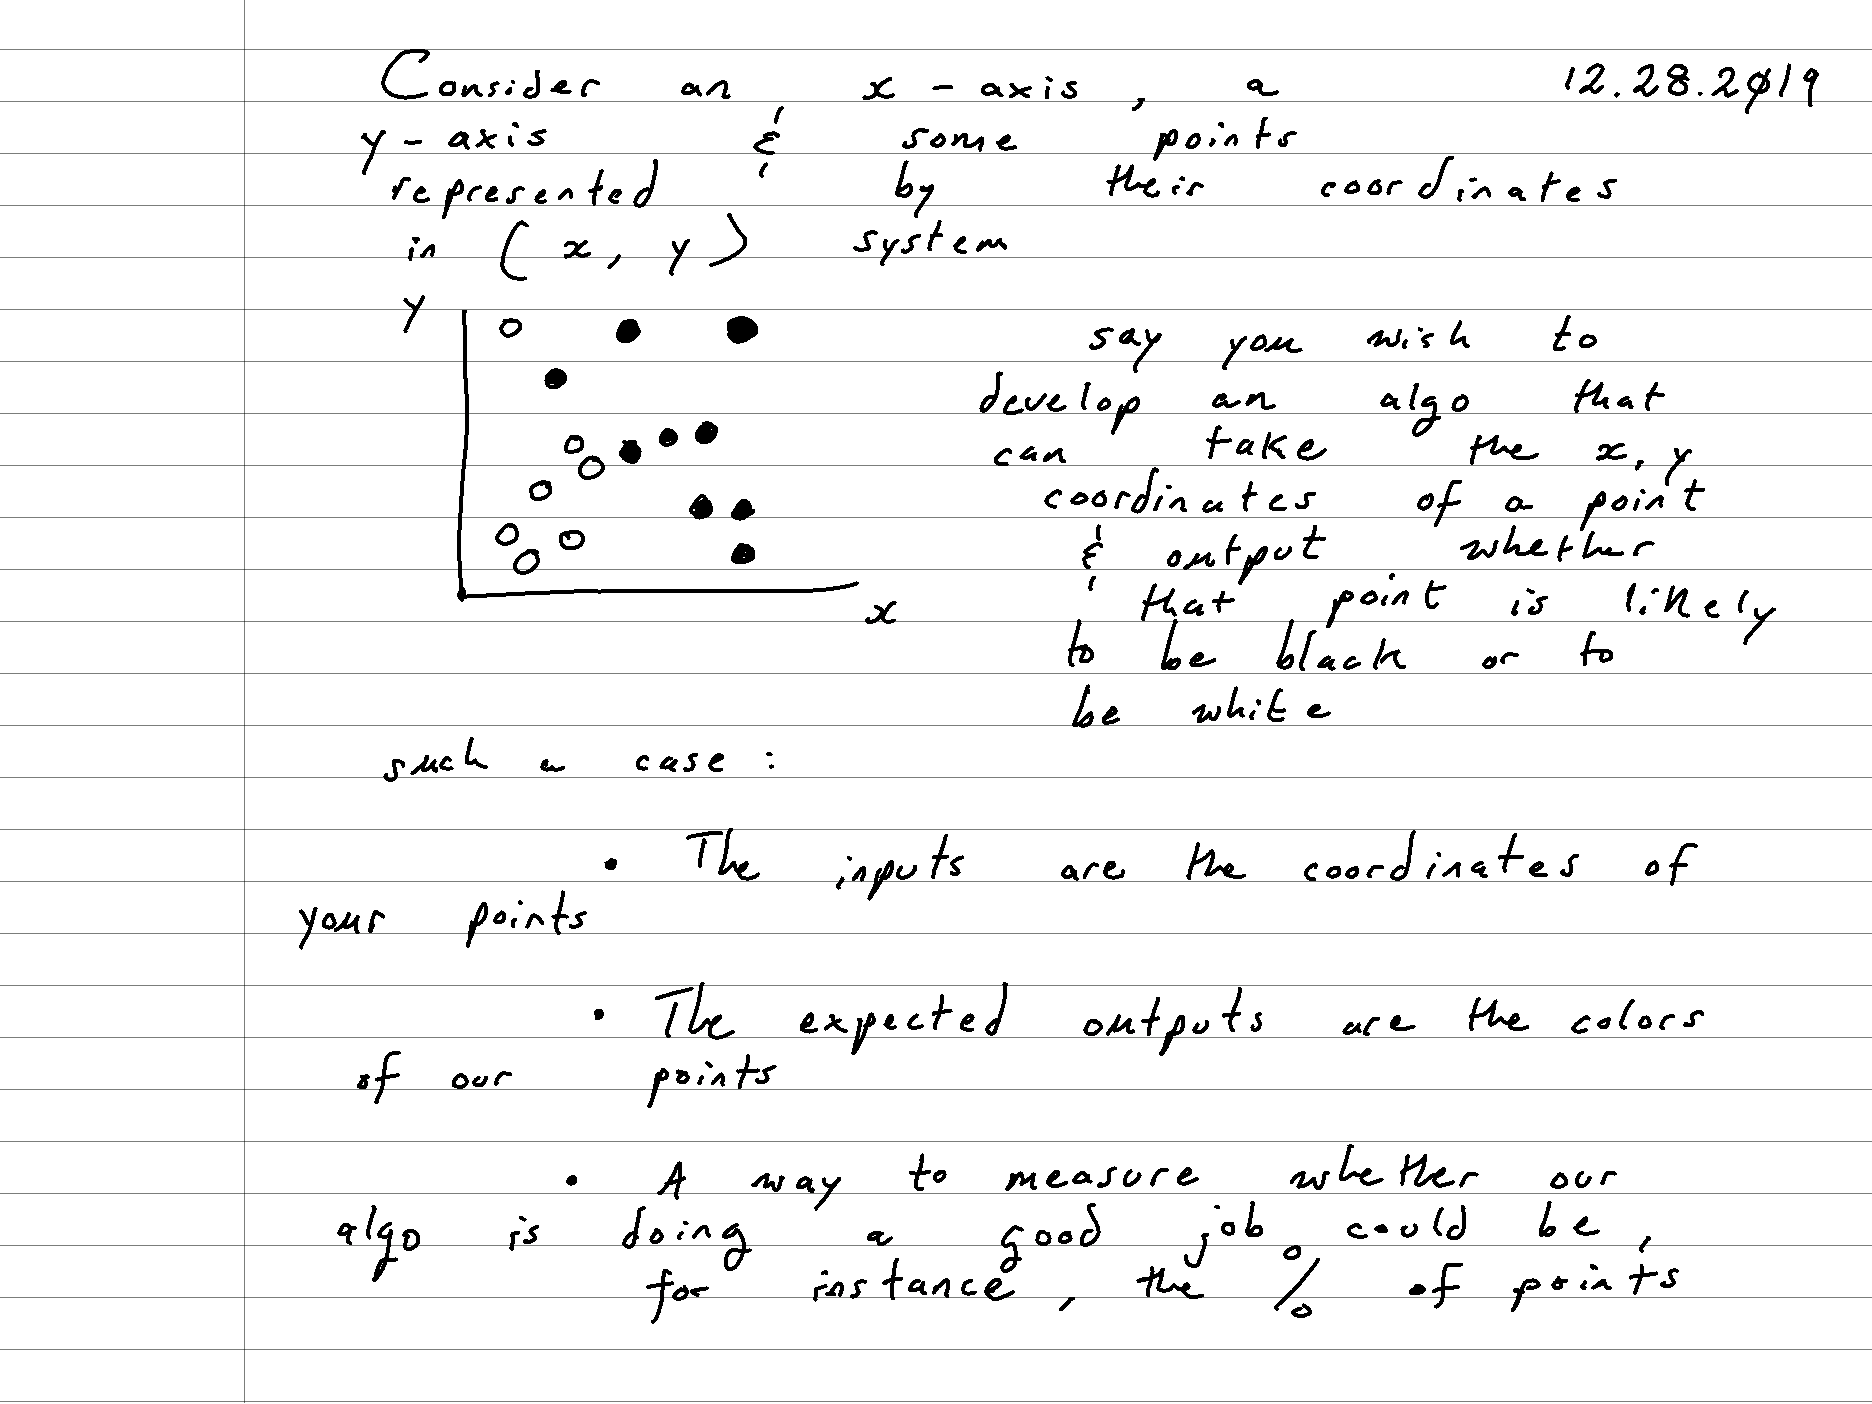 Consider an x-axis, a 12.28.2019
y-axis & some points
represented by their coordinates
in (x, y) system
y
say you wish to
develop an algo that
can take the x, y
coordinates of a point
& output whether
that point is likely
x
to be black or to
be white
such a case:
• The inputs are the coordinates of
your points
• The expected outputs are the colors
of our points
• A way to measure whether our
algo is doing a good job could be,
for instance, the % of points